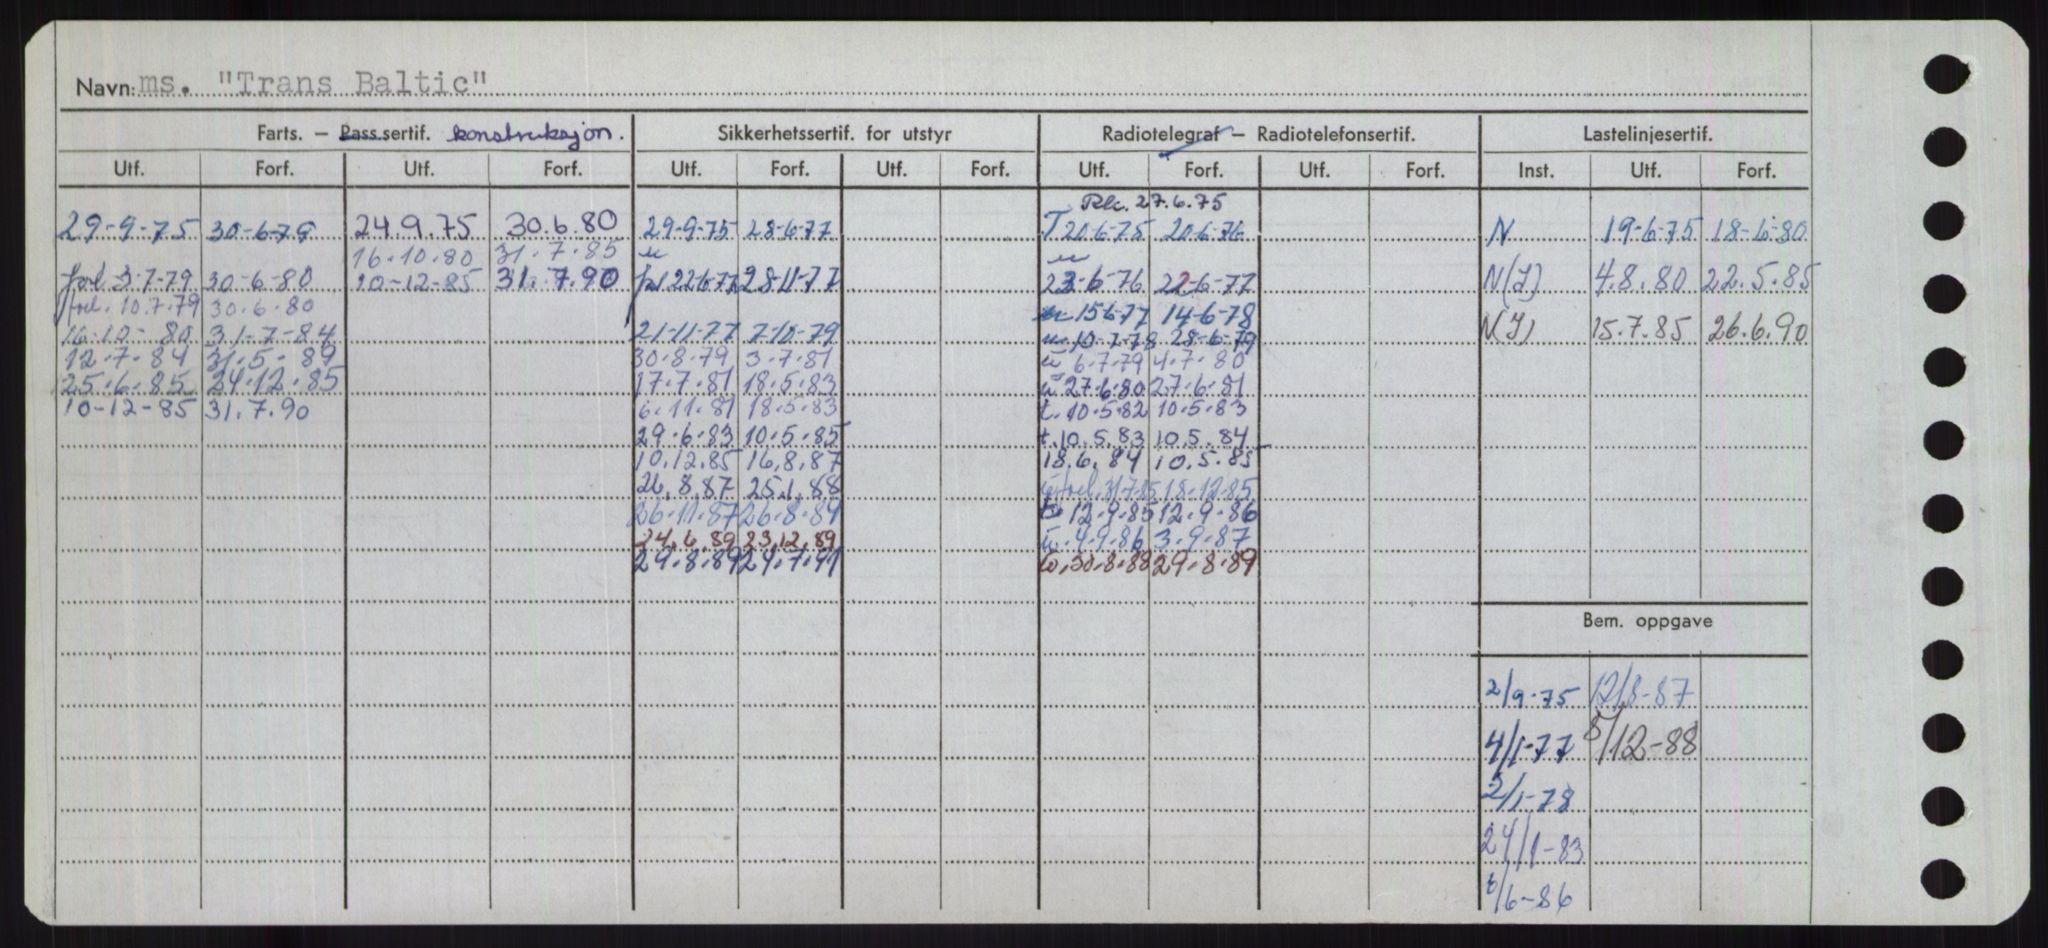 Navn: ms. "Trans Baltic"
Farts. — Pass.sertif. konstruksjon. Sikkerhetssertif. for utstyr Radiotelegraf — Radiotelefonsertif. Lastelinjesertif.
Utf. Forf. Utf. Forf. Utf. Forf. Utf. Forf. Utf. Forf. Utf. Forf. Inst. Utf. Forf.
27.6.75
29-9-75 30-6-79 24.9.75 30.6.80 29-9-75 28-6-77 T 20-6-75 20-6-76 N 19-6-75 18-6-80
16.10.80 31.7.85
forl. 3-7-79 30-6-80 10-12-85 31.7.90 22-6-77 28-11-77 23-6-76 22-6-77 N(I) 4.8.80 22.5.85
forl. 10.7.79 30.6.80 15-6-77 14-6-78
16-10-80 31-7-84 21-11-77 7-10-79 10-7-78 28-6-79 N(I) 15.7.85 26.6.90
12.7.84 31.5.89 30.8.79 3.7.81 6.7.79 4.7.80
25.6.85 24.12.85 17.7.81 18.5.83 27.6.80 27.6.81
10-12-85 31.7.90 6.11.81 18.5.83 t. 10.5.82 10.5.83
29.6.83 10.5.85 t. 10.5.83 10.5.84
10.12.85 16.8.87 18.6.84 10.5.85
26.8.87 25.1.88 forl. 31.7.85 18.12.85
26.11.87 26.8.89 12.9.85 12.9.86
24.6.89 23.12.89 4.9.86 3.9.87
29.8.89 24.7.91 30.8.88 29.8.89
Bem. oppgave
2/9-75 12/8-87
4/1-77 5/12-88
2/1-78
24/1-83
6/6-86